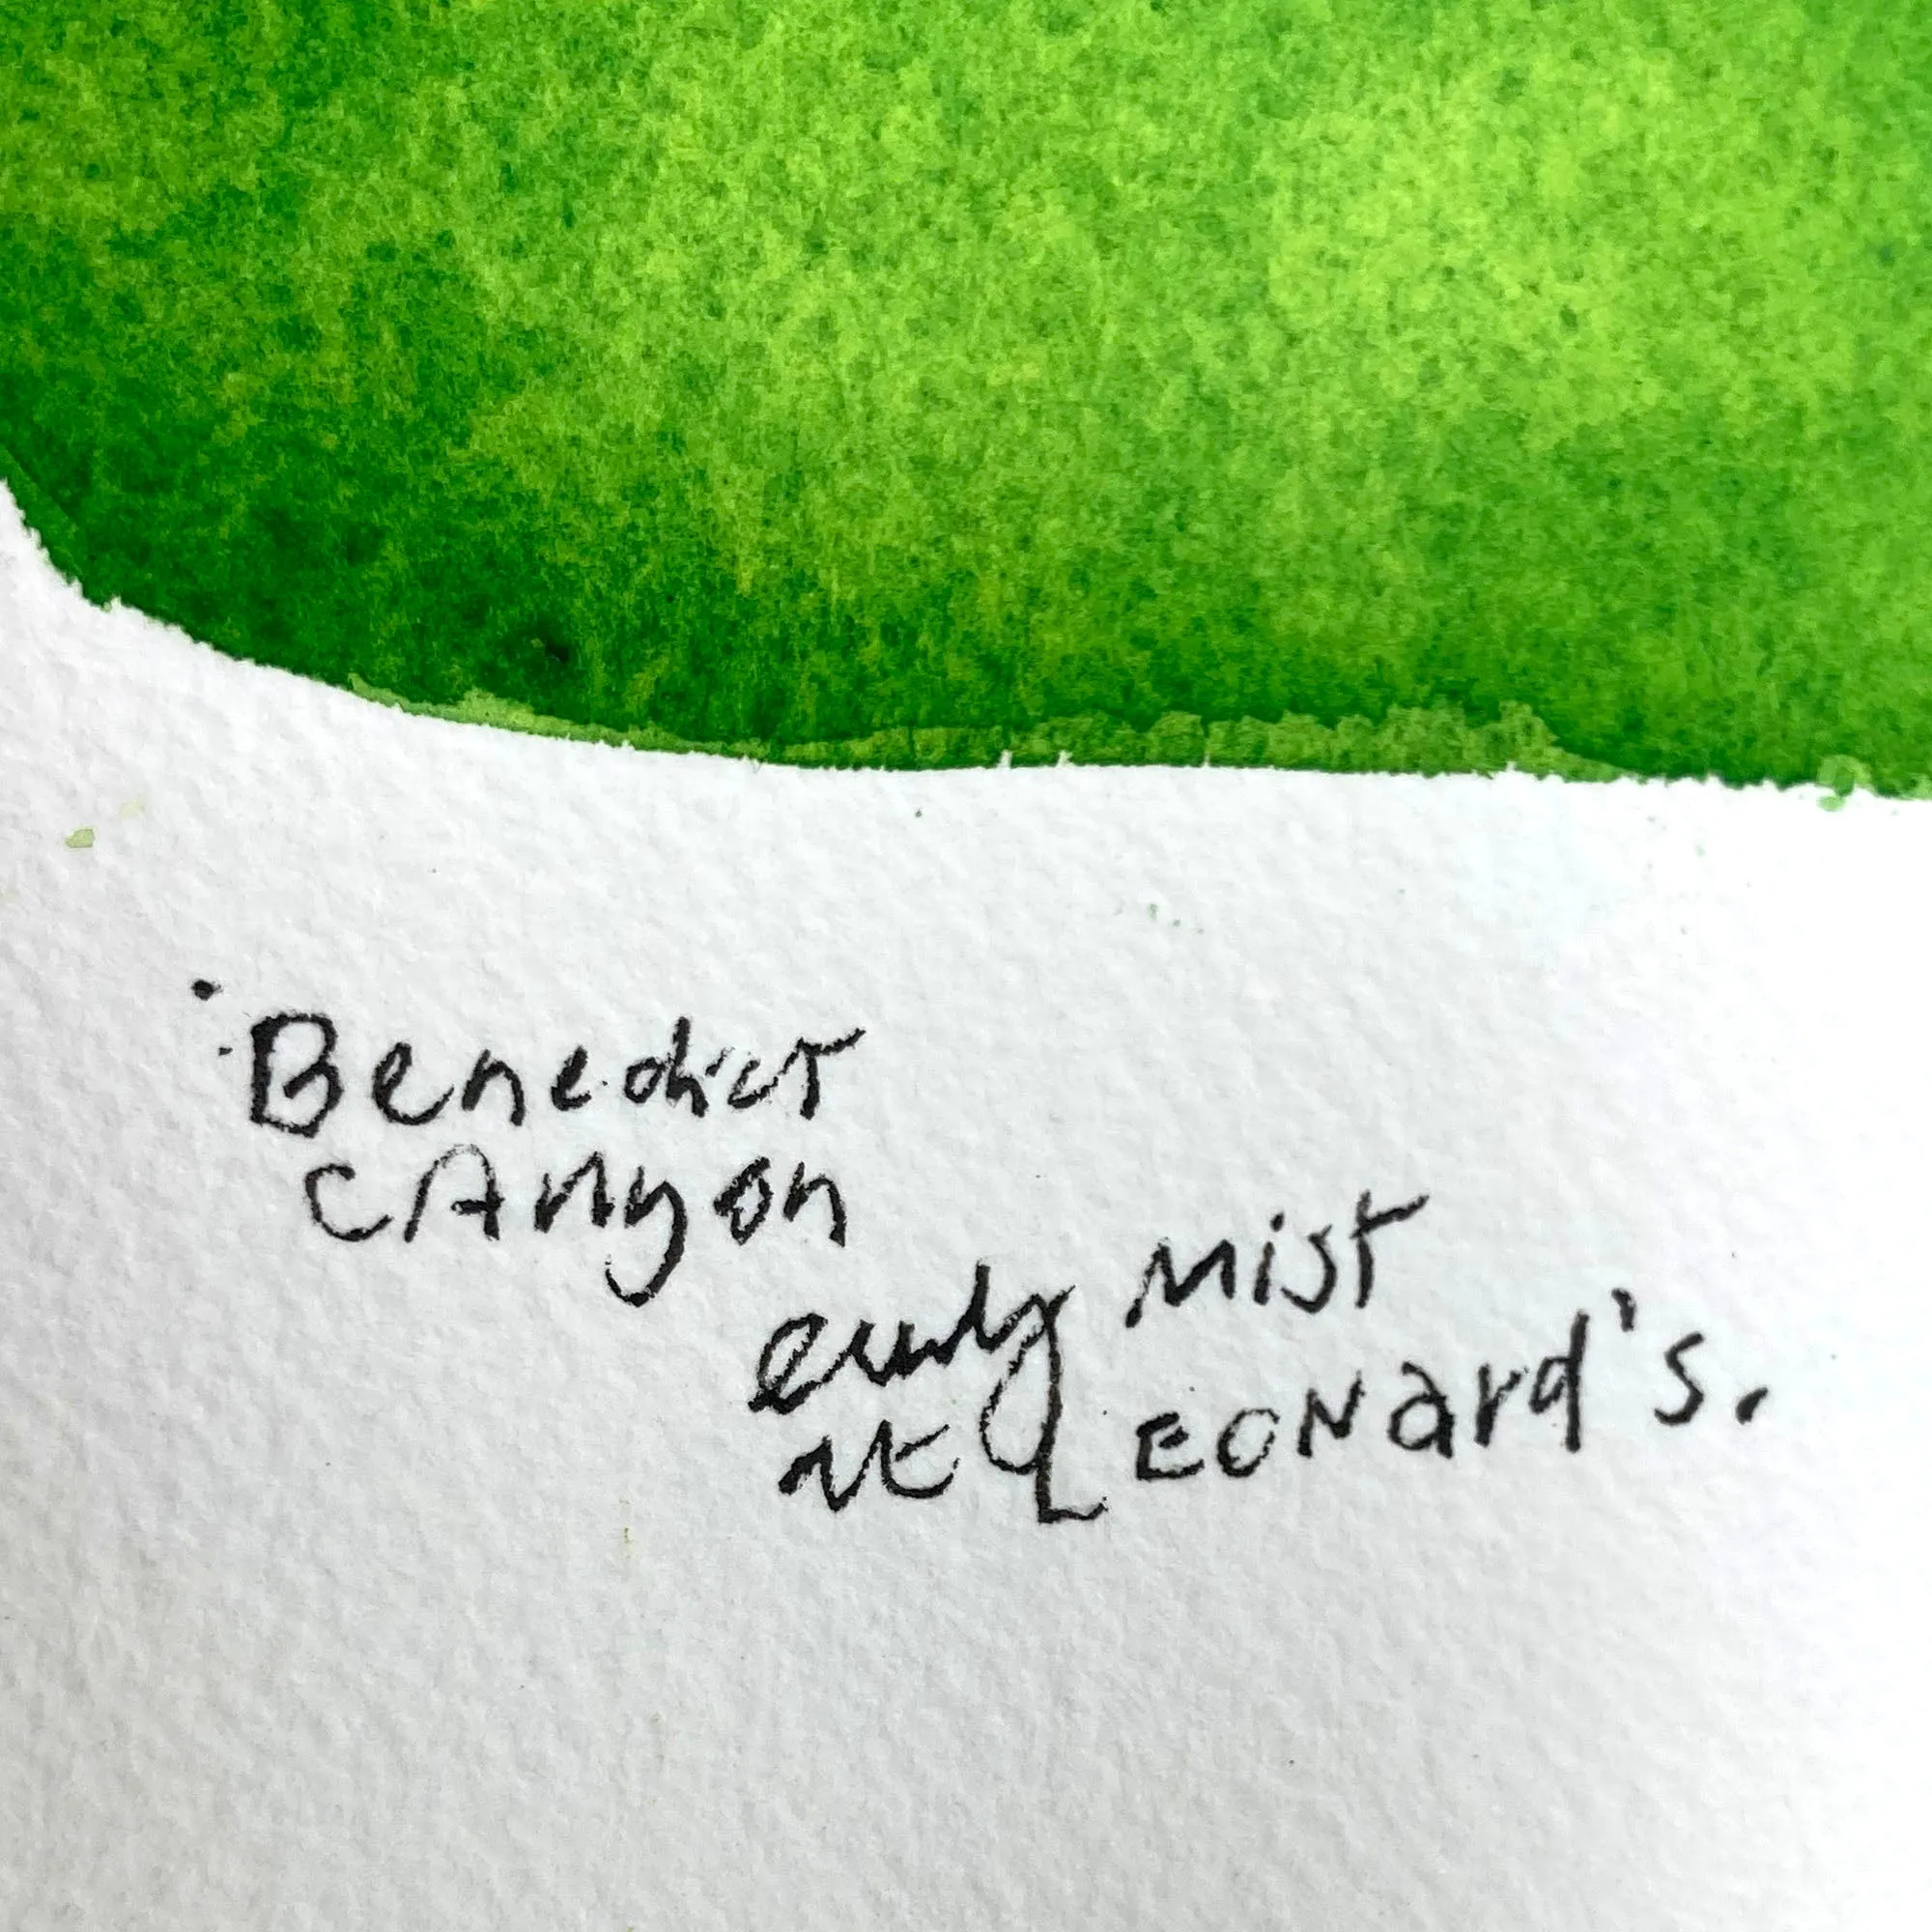 Benedict
CAnyon
early Mist
at LEONard's.